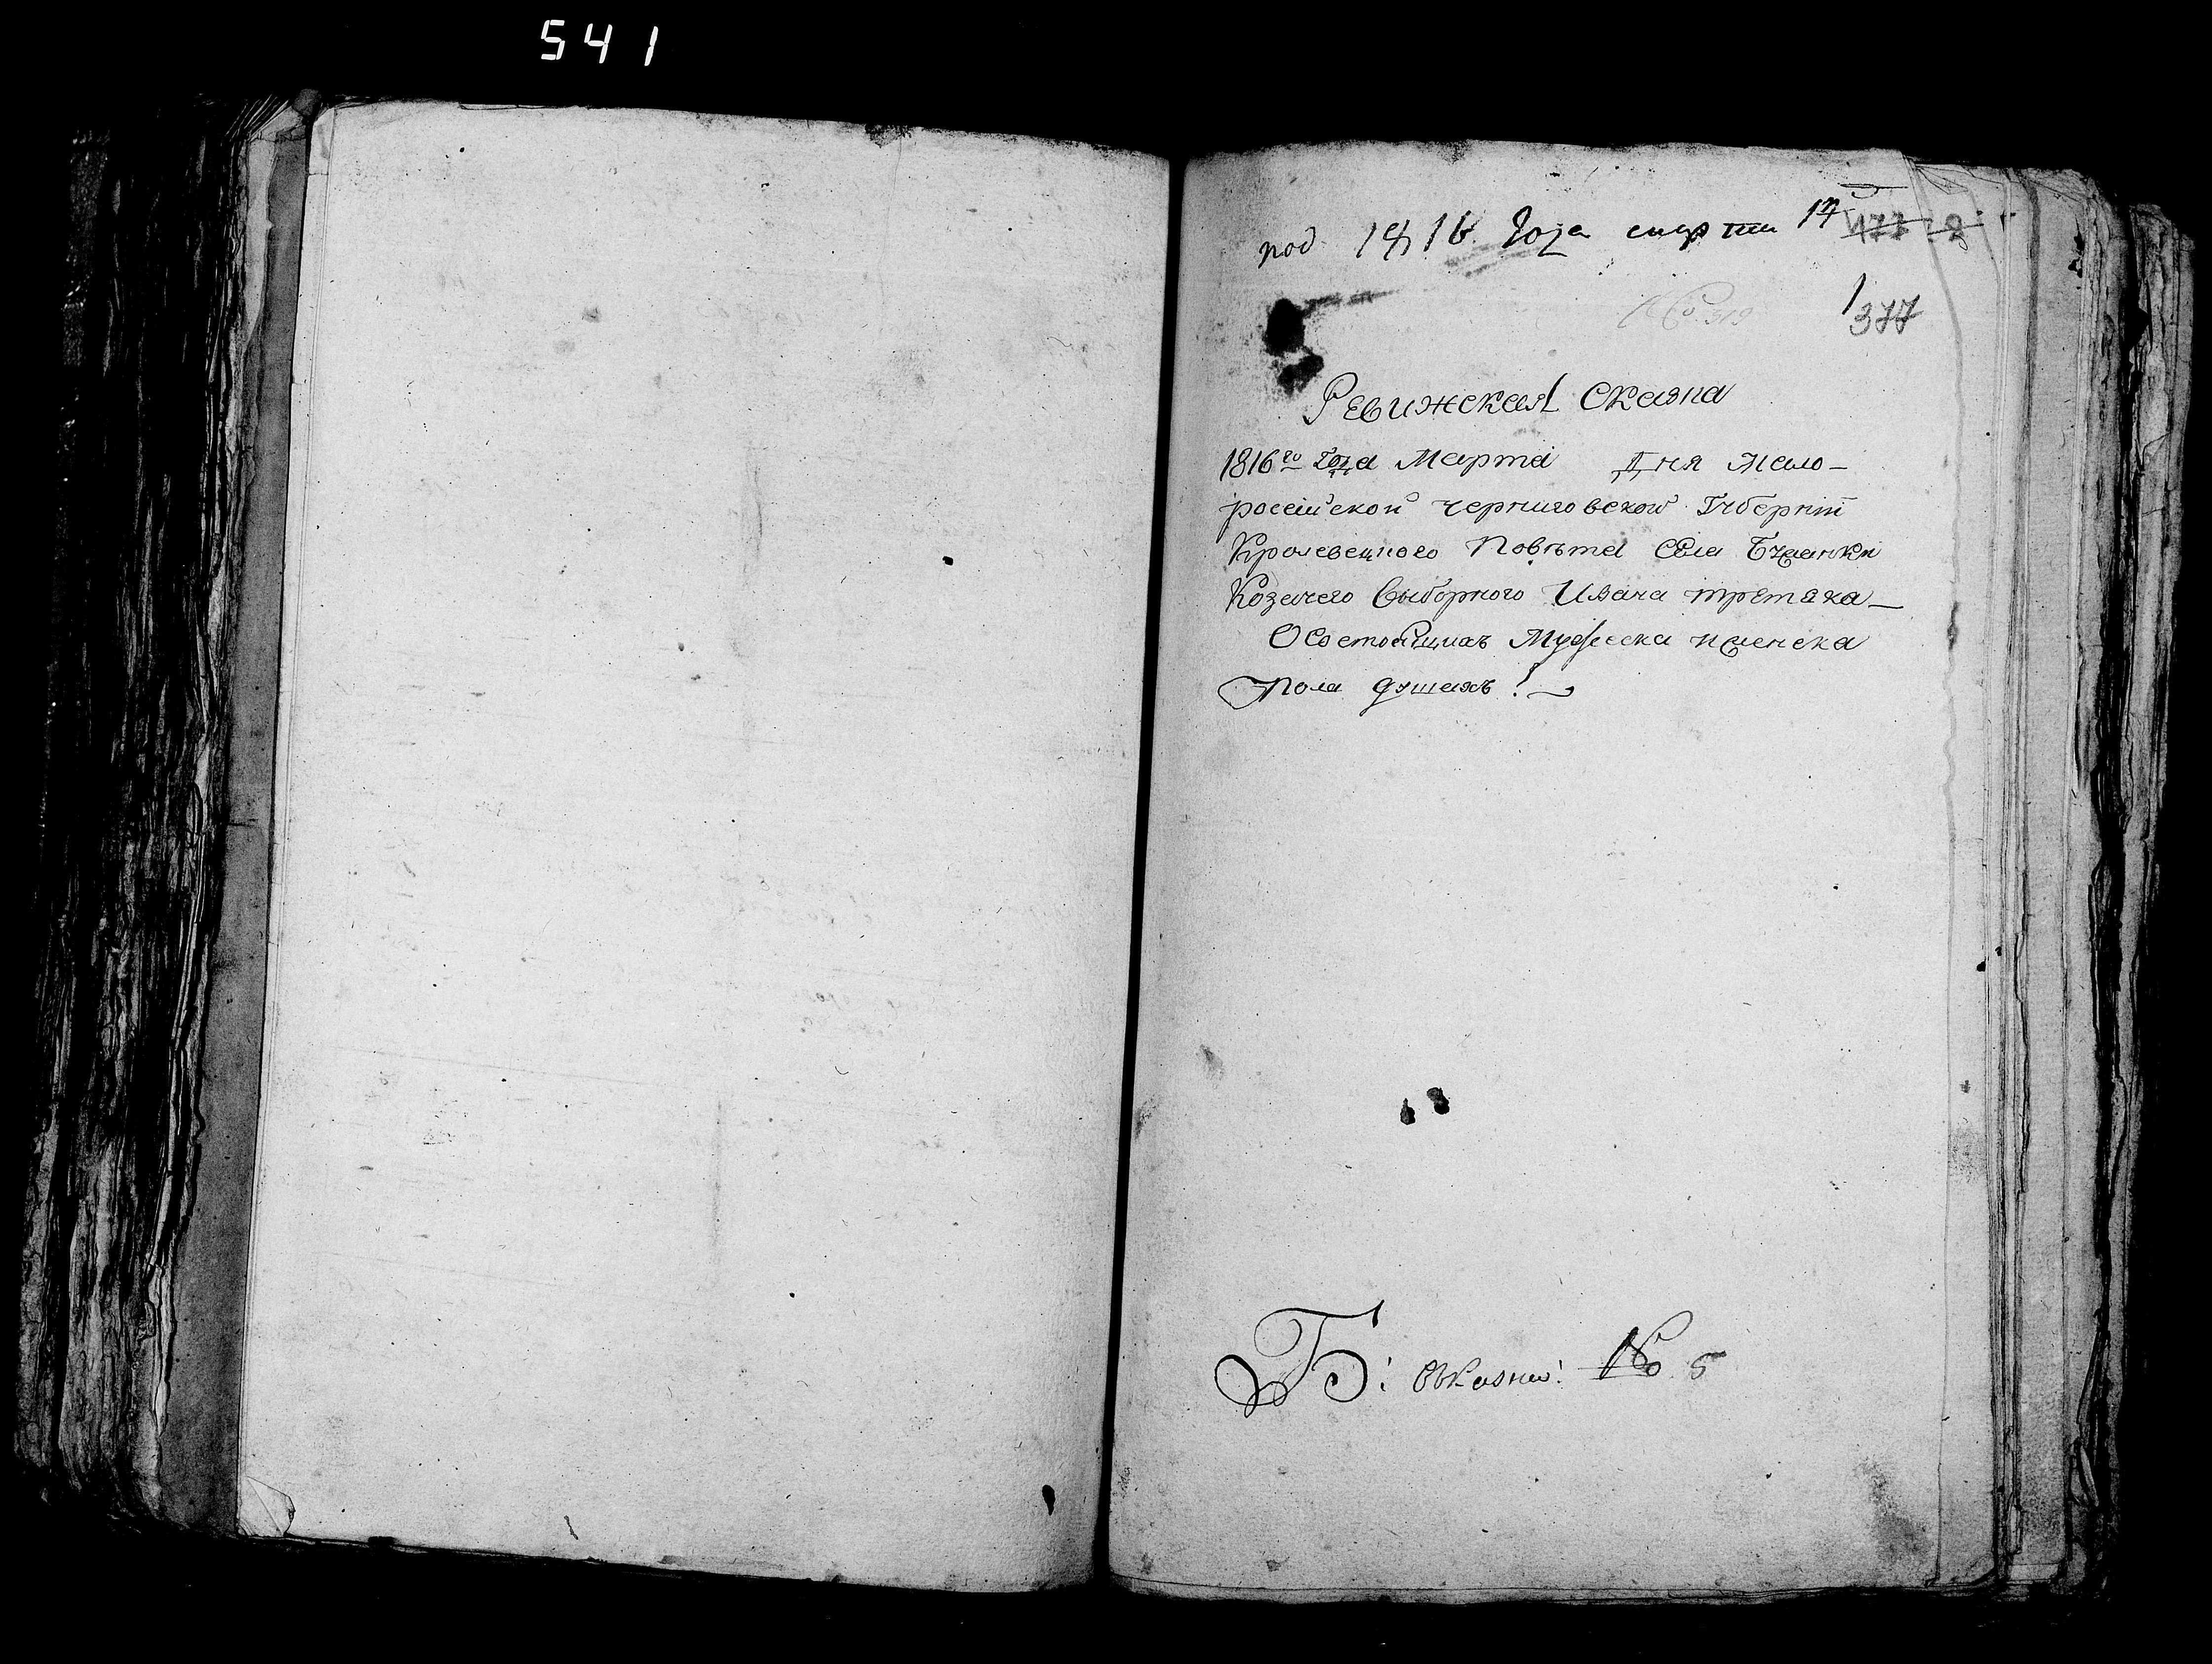 541
под 1816 Года марта 17
377
Ревижская Сказка
1816го Года Марта Дня Мало-
россійской Черниговской Губерніи
Кролевецкого Повѣта Села
Козачего Выборного Ивана третяка-
О Состоящихъ Мужеска иженска
Пола душахъ!
Б: No 5